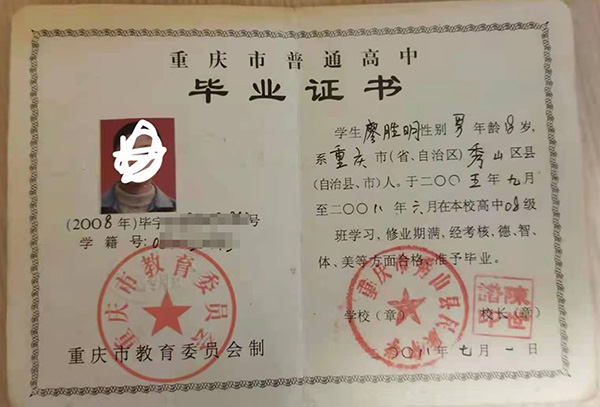 重庆市普通高中
毕业证书
(2008年)毕字 号
学籍号:
重庆市教育委员会
重庆市教育委员会制
学生廖胜明性别男年龄18岁,
系重庆市(省、自治区)秀山区县
(自治县、市)人。于二〇〇五年九月
至二〇〇八年六月在本校高中08级
班学习,修业期满,经考核,德、智、
体、美等方面合格,准予毕业。
学校(章) 校长(章)
二〇〇八年七月一日